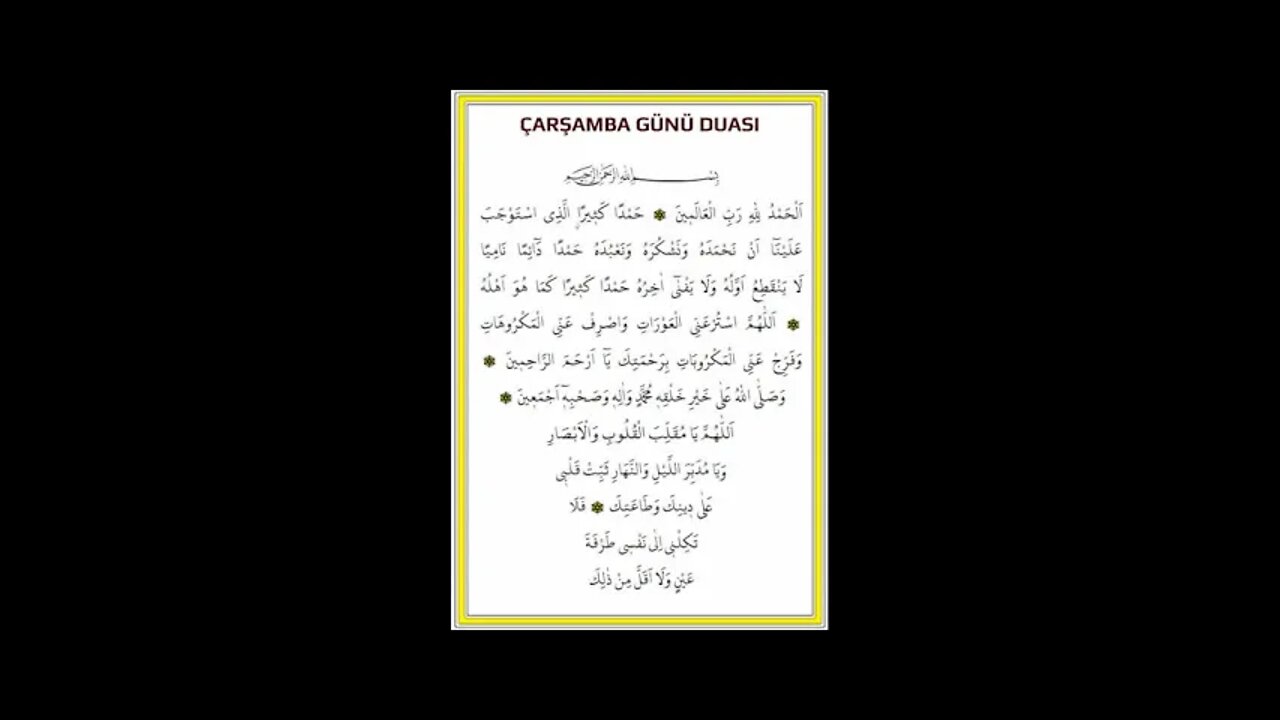 ÇARŞAMBA GÜNÜ DUASI
بِسْمِ اللهِ الرَّحْمٰنِ الرَّحِيمِ
اَلْحَمْدُ لِلّٰهِ رَبِّ الْعَالَمِينَ ۞ حَمْدًا كَثِيرًا الَّذِى اسْتَوْجَبَ
عَلَيْنَٓا اَنْ نَحْمَدَهُ وَنَشْكُرَهُ وَنَعْبُدَهُ حَمْدًا دَٓائِمًا نَامِيًا
لَا يَنْقَطِعُ اَوَّلُهُ وَلَا يَفْنٰٓى اٰخِرُهُ حَمْدًا كَثِيرًا كَمَا هُوَ اَهْلُهُ
۞ اَللّٰهُمَّ اسْتُرْعَنِى الْعَوْرَاتِ وَاصْرِفْ عَنِّى الْمَكْرُوهَاتِ
وَفَرِّجْ عَنِّى الْمَكْرُوبَاتِ بِرَحْمَتِكَ يَٓا اَرْحَمَ الرَّاحِمِينَ ۞
وَصَلَّى اللهُ عَلٰى خَيْرِ خَلْقِهِ مُحَمَّدٍ وَاٰلِهِ وَصَحْبِهِٓ اَجْمَعِينَ ۞
اَللّٰهُمَّ يَا مُقَلِّبَ الْقُلُوبِ وَالْاَبْصَارِ
وَيَا مُدَبِّرَ اللَّيْلِ وَالنَّهَارِ ثَبِّتْ قَلْبِى
عَلٰى دِينِكَ وَطَاعَتِكَ ۞ فَلَا
تَكِلْنِى اِلٰى نَفْسِى طَرْفَةَ
عَيْنٍ وَلَا اَقَلَّ مِنْ ذٰلِكَ